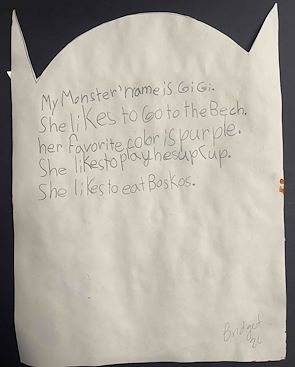 My Monster'name is GiGi.
She likes to Go to the Bech.
her favorite color is purple.
She likes to play hesupCup.
She likes to eat Boskos.
Bridget